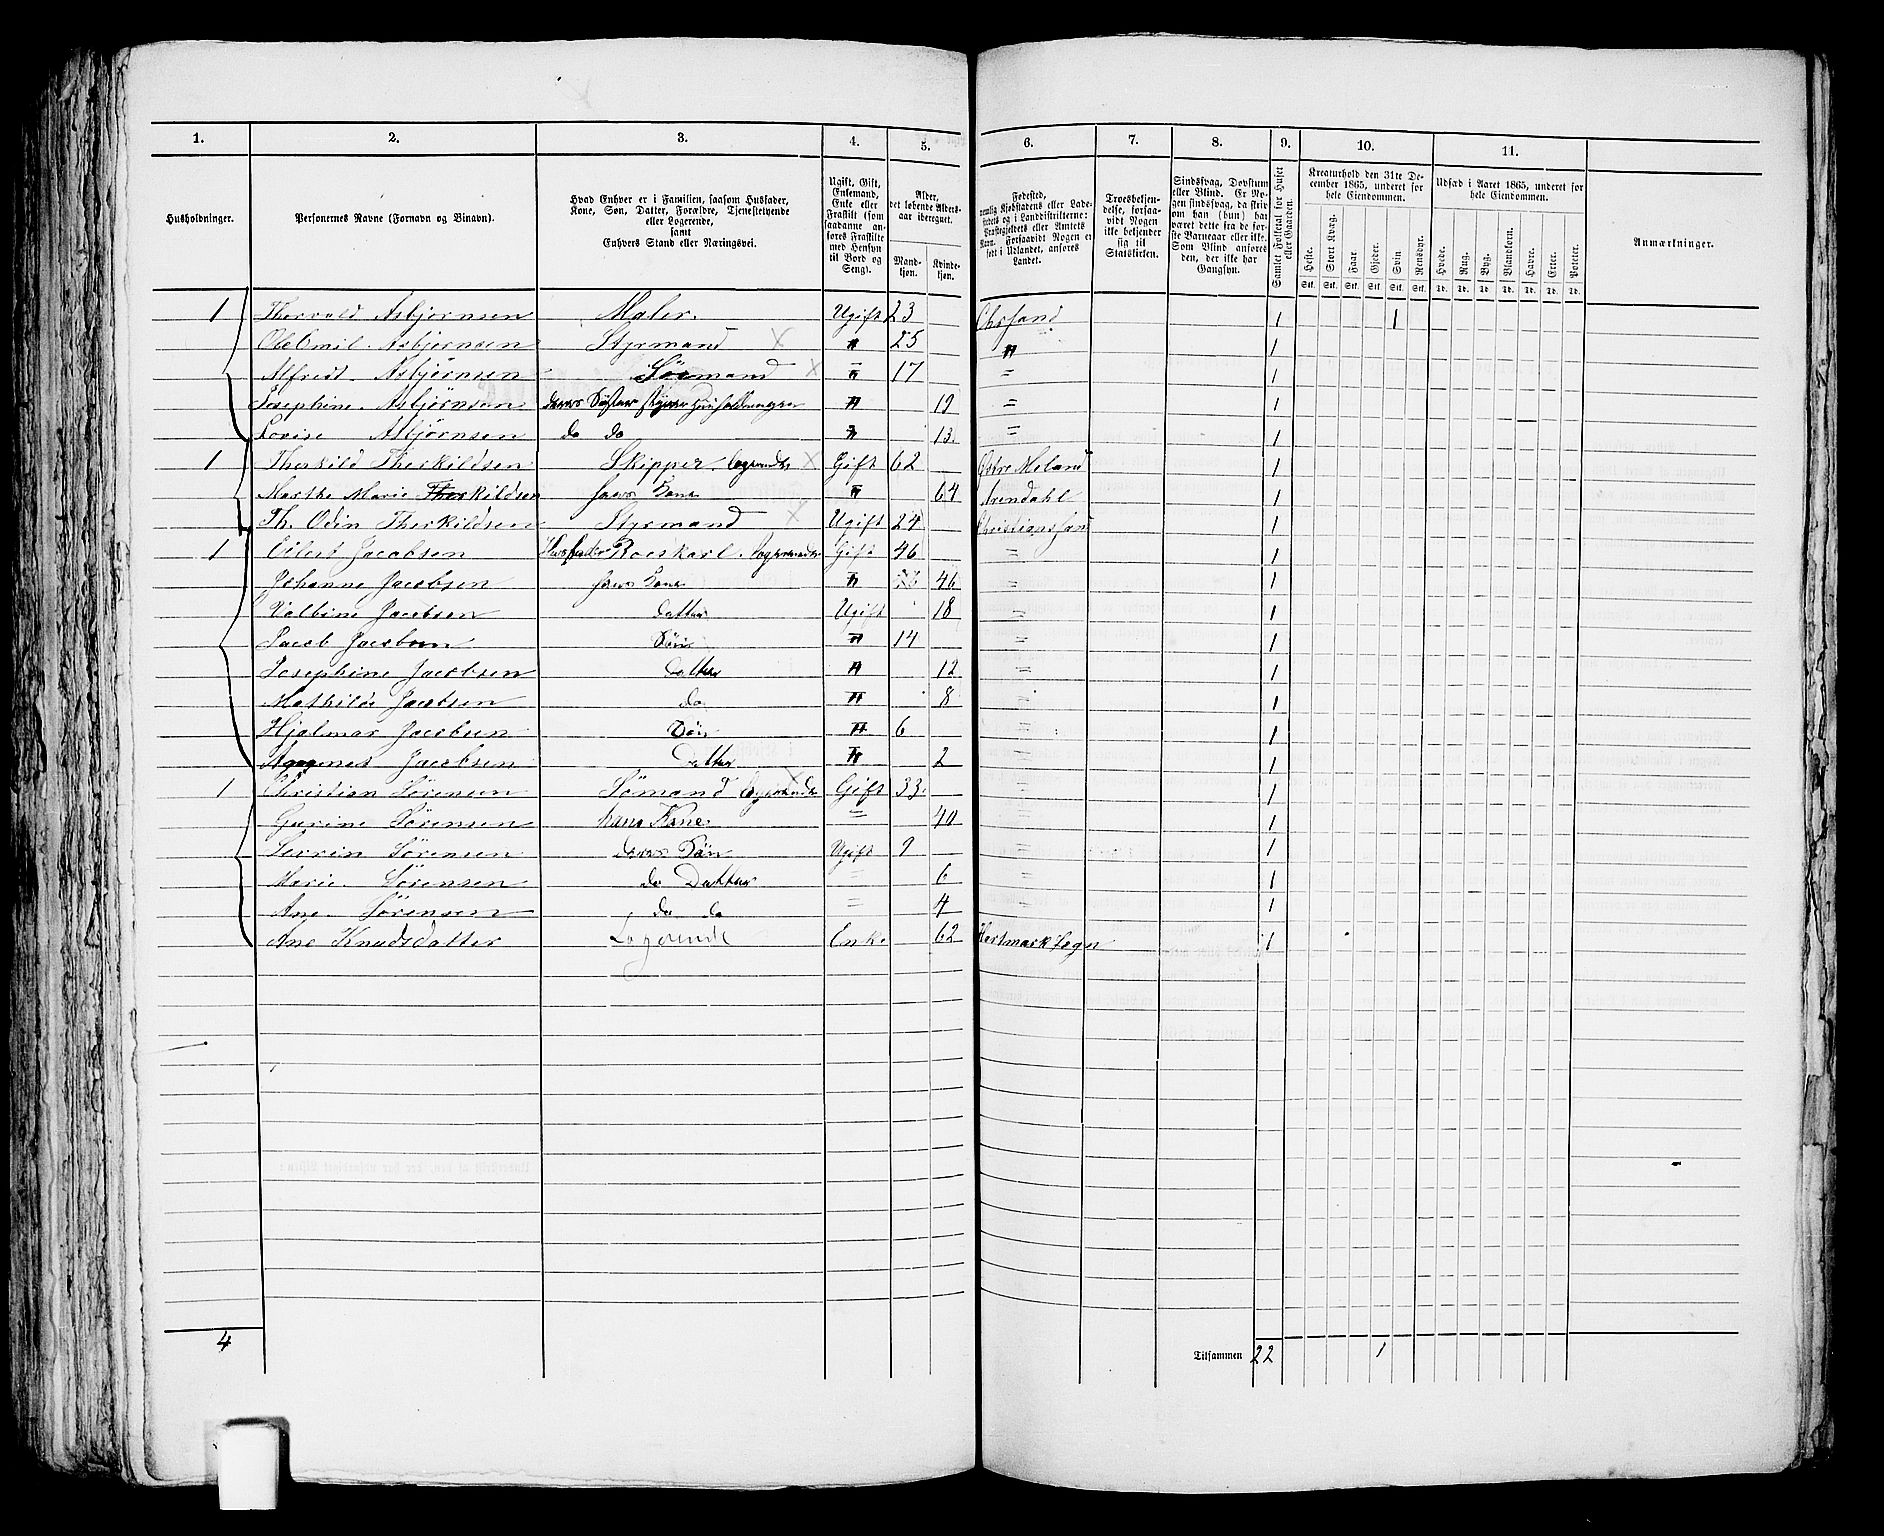 1. 2. 3. 4. 5. 6. 7. 8. 9. 10. 11.
Husholdninger.
Personernes Navne (Fornavn og Binavn).
Hvad Enhver er i Familien, saasom Husfader, Kone, Søn, Datter, Forældre, Tjenestetyende eller Logerende, samt Enhvers Stand eller Næringsvei.
Ugift, Gift, Enkemand, Enke eller Fraskilt (som saadanne anføres Fraskilte med Hensyn til Bord og Seng).
Alder, det løbende Aldersaar iberegnet.
Mandkjøn. Kvindekjøn.
Fødested, nemlig Kjøbstadens eller Ladestedets og i Landdistrikterne: Præstegjeldets eller Amtets Navn. Forsaavidt Nogen er født i Udlandet, anføres Landet.
Troesbekjendelse, forsaavidt Nogen ikke bekjender sig til Statskirken.
Sindssvag, Døvstum eller Blind. Er Nogen sindssvag, da skrives om han (hun) har været dette fra de første Barneaar eller ikke. Som Blind anføres den, der ikke har Gangsyn.
Samlet Folketal for Huset eller Gaarden.
Kreaturhold den 31te December 1865, underet for hele Eiendommen.
Heste. Stort Kvæg. Faar. Gjeder. Svin. Rensdyr.
Stk. Stk. Stk. Stk. Stk. Stk.
Udsæd i Aaret 1865, underet for hele Eiendommen.
Hvede. Rug. Byg. Blandkorn. Havre. Erter. Poteter.
Td. Td. Td. Td. Td. Td. Td.
Anmærkninger.
1 Thorvald Asbjørnsen Maler. Ugift 23 Chrsand 1 1
Ole Emil. Asbjørnsen Styrmand X " 25 " 1
Alfred. Asbjørnsen Sømand X " 17 " 1
Josephine. Asbjørnsen deres Søster styrer Huusholdningen " 19 " 1
Lovise Asbjørnsen do do " 13. " 1
1 Therkild Therkildsen Skipper. logerende X Gift 62 Østre Moland 1
Marthe Marie Therkildsen hans Kone " 64 Arendahl 1
Th. Odin Therkildsen Styrmand X Ugift 24 Christianssand 1
1 Eilert Jacobsen Husfader Roerskarl. logerende Gift 46 " 1
Johanne Jacobsen hans Kone " 46 " 1
Valbine Jacobsen datter Ugift 18 " 1
Jacob Jacobsen Sön " 14 " 1
Josephine Jacobsen datter " 12 " 1
Mathilde Jacobsen do " 8 " 1
Hjalmar Jacobsen Sön " 6 " 1
Agnes Jacobsen datter " 2 " 1
1 Christian Sörensen Sömand logerende X Gift 33. " 1
Gurine Sörensen hans Kone. " 40 " 1
Severin Sörensen deres Sön Ugift 9 " 1
Marie. Sörensen do Datter " 6 " 1
Ane. Sörensen do do " 4 " 1
Ane Knudsdatter Logerende Enke 62 Hartmark Sogn 1
4 Tilsammen 22 1